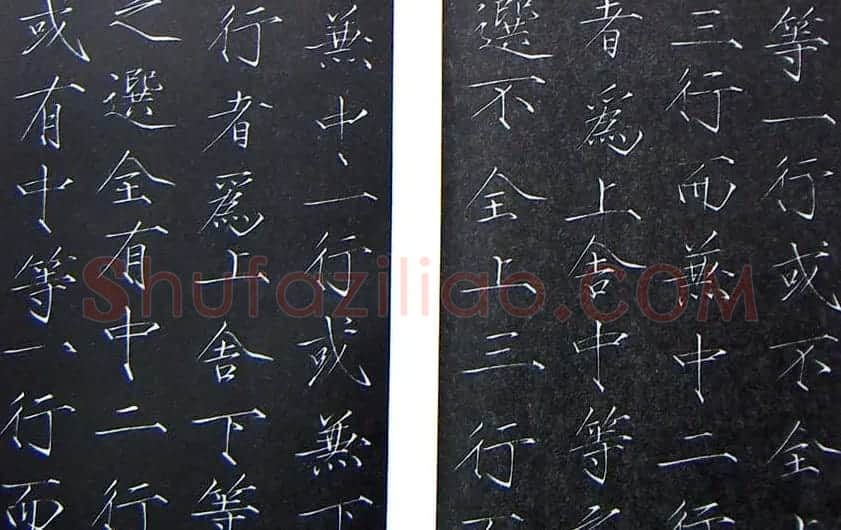 等一行或不全上
三行而無中二行
者為上舍中等
選不全上三行
無中一行或無下
行者為上舍下等
之選全有中二行
或有中等一行而
Shufaziliao.COM